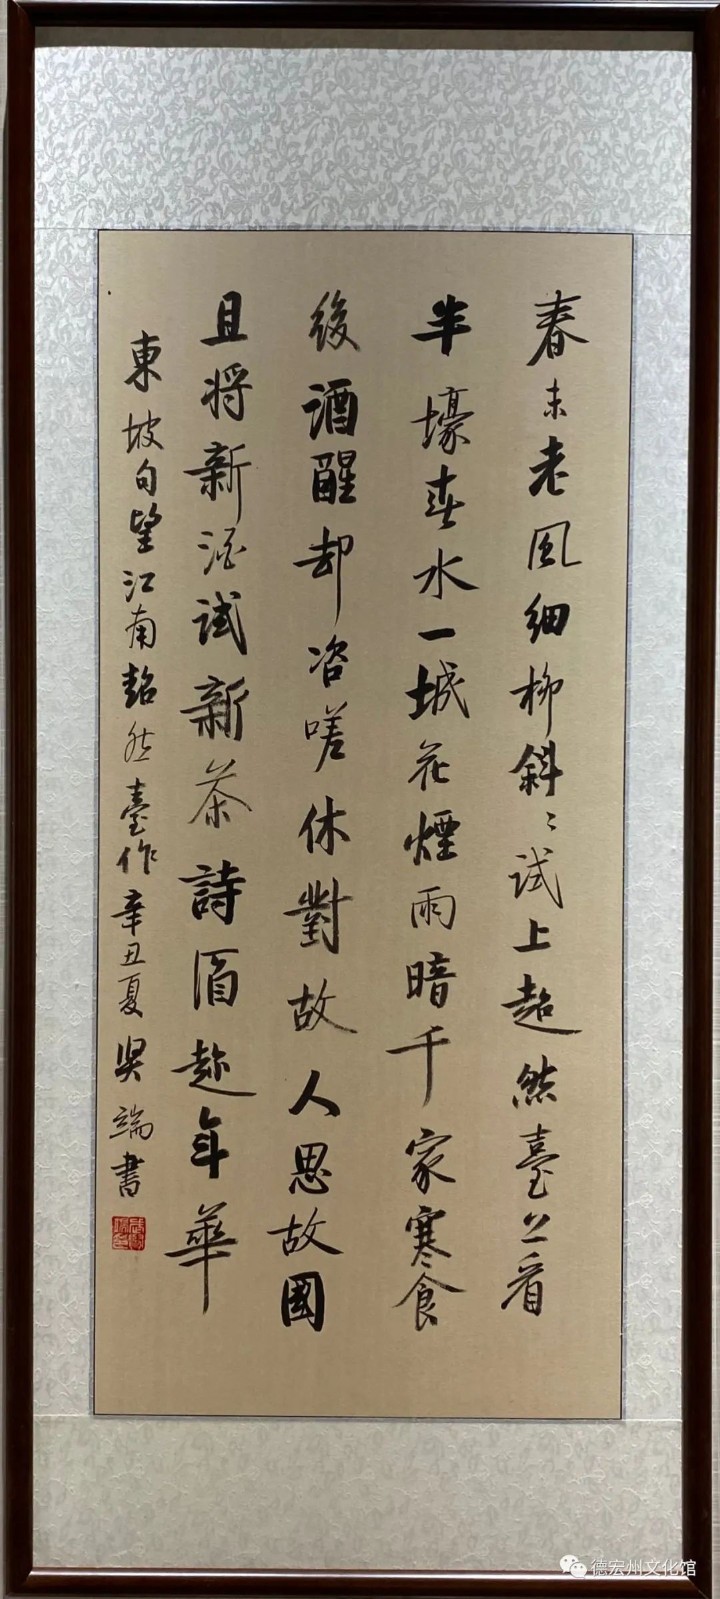 春未老風細柳斜〻試上超然臺上看
半壕春水一城花煙雨暗千家寒食
後酒醒却咨嗟休對故人思故國
且將新酒試新茶詩酒趁年華
東坡句望江南超然臺作辛丑夏吳端書
德宏州文化馆